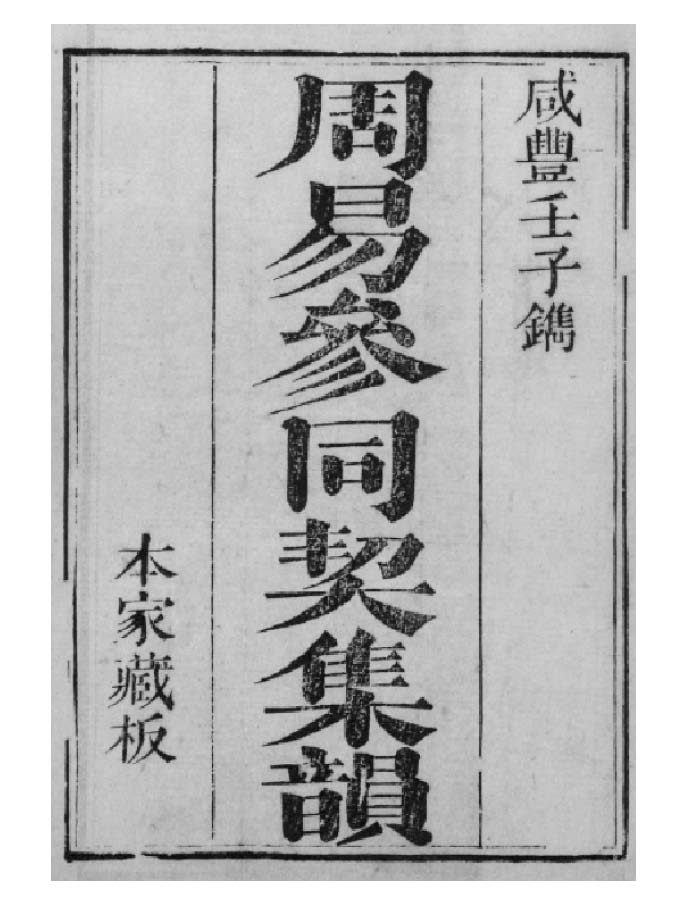 咸豐壬子鐫
周易參同契集韻
本家藏板